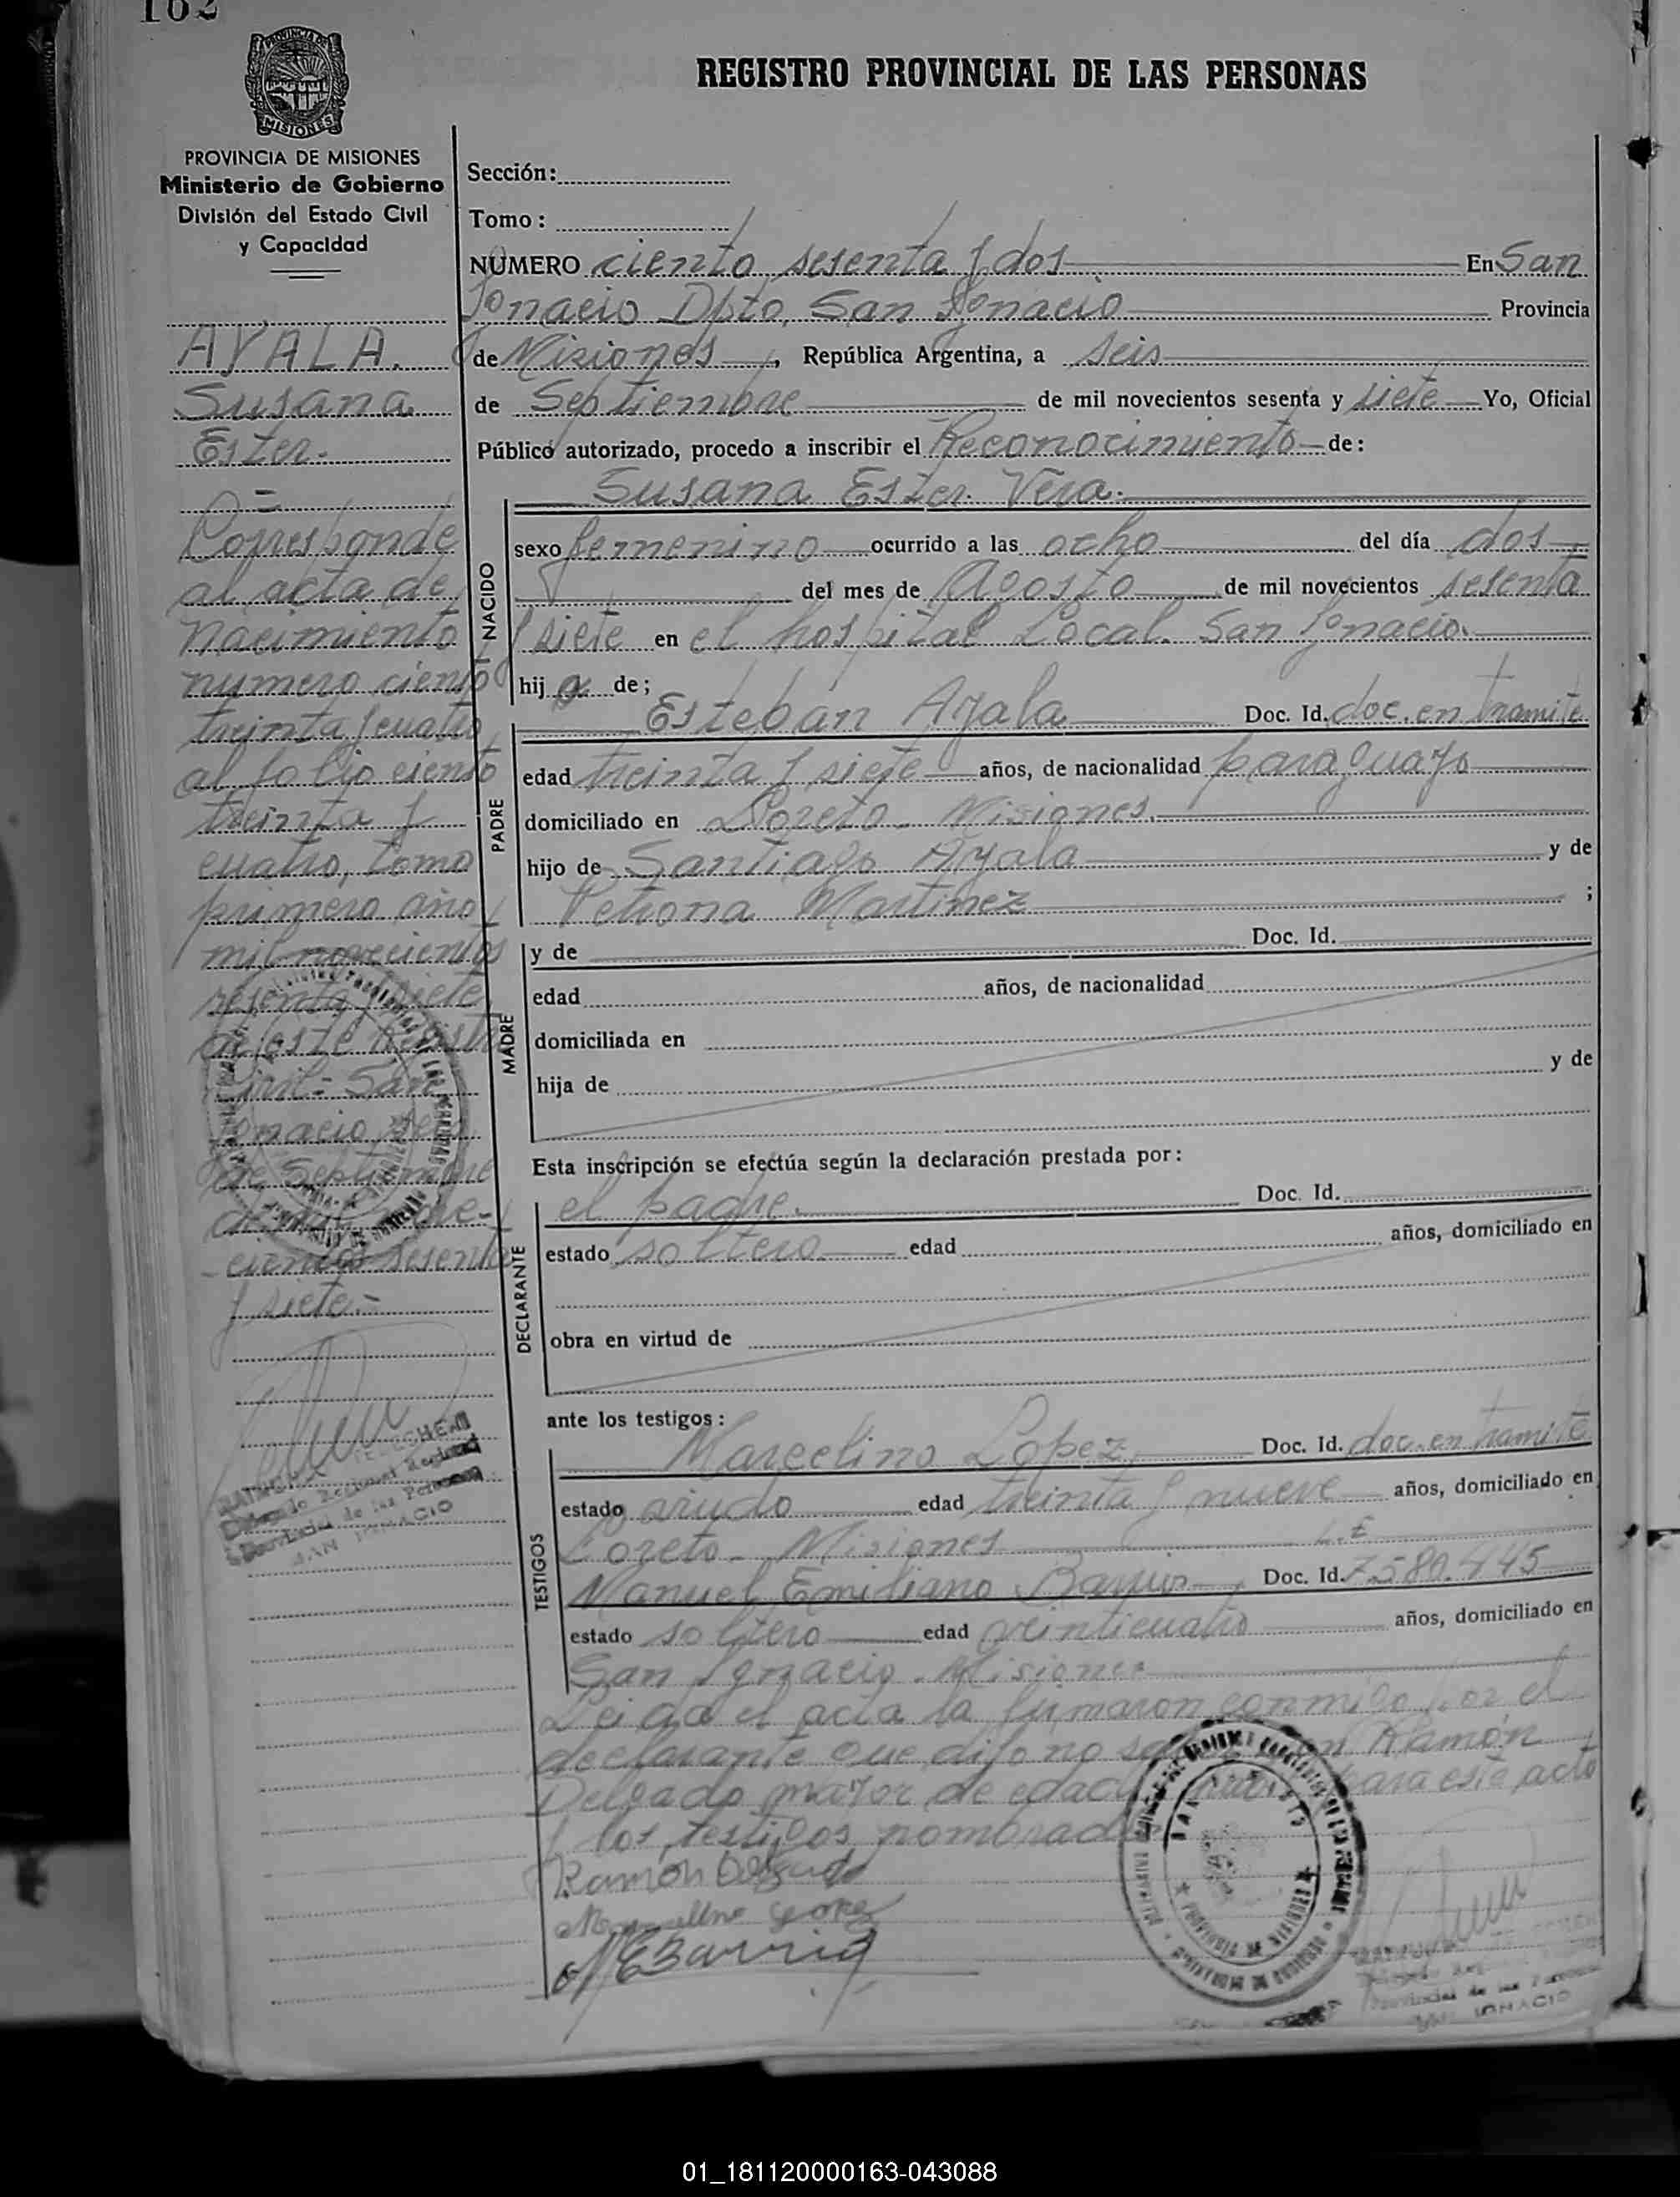 162
REGISTRO PROVINCIAL DE LAS PERSONAS
PROVINCIA DE
MISIONES
PROVINCIA DE MISIONES
Ministerio de Gobierno
División del Estado Civil
y Capacidad
AYALA.
Susana
Ester.-
=
Corresponde
al acta de
nacimiento
numero ciento
treinta y cuatro
al folio ciento
treinta y
cuatro, tomo
primero año
mil novecientos
sesenta y siete
de este Registro
Civil.- San
Ignacio, seis
de Septiembre
de mil nove-
cientos sesenta
y siete.-
Delegado Regional
Provincial de las Personas
SAN IGNACIO
Sección:
Tomo:
NÚMERO ciento sesenta y dos En San
Ignacio Dpto, San Ignacio Provincia
de Misiones, República Argentina, a seis
de Septiembre de mil novecientos sesenta y siete Yo, Oficial
Público autorizado, procedo a inscribir el Reconocimiento de:
Susana Ester Vera.
NACIDO
sexo femenino ocurrido a las ocho del día dos
del mes de Agosto de mil novecientos sesenta
y siete en el hospital Local. San Ignacio.
hija de;
PADRE
Esteban Ayala Doc. Id. doc. en tramite
edad treinta y siete años, de nacionalidad paraguayo
domiciliado en Loreto - Misiones.
hijo de Santiago Ayala y de
Petrona Martinez ;
MADRE
y de Doc. Id.
edad años, de nacionalidad
domiciliada en
hija de y de
Esta inscripción se efectúa según la declaración prestada por:
DECLARANTE
el padre. Doc. Id.
estado soltero edad años, domiciliado en
obra en virtud de
ante los testigos:
TESTIGOS
Marcelino Lopez, Doc. Id. doc. en tramite
estado viudo edad treinta y nueve años, domiciliado en
Loreto - Misiones L.E
Manuel Emiliano Barrios, Doc. Id. 7.580.445
estado soltero edad veinticuatro años, domiciliado en
San Ignacio. Misiones
Leida el acta la firmaron conmigo por el
declarante que dijo no Ramón
Delgado mayor de edad para este acto
y los testigos nombrados
Ramón Delgado
Marcelino Lopez
IGNACIO
01_181120000163-043088